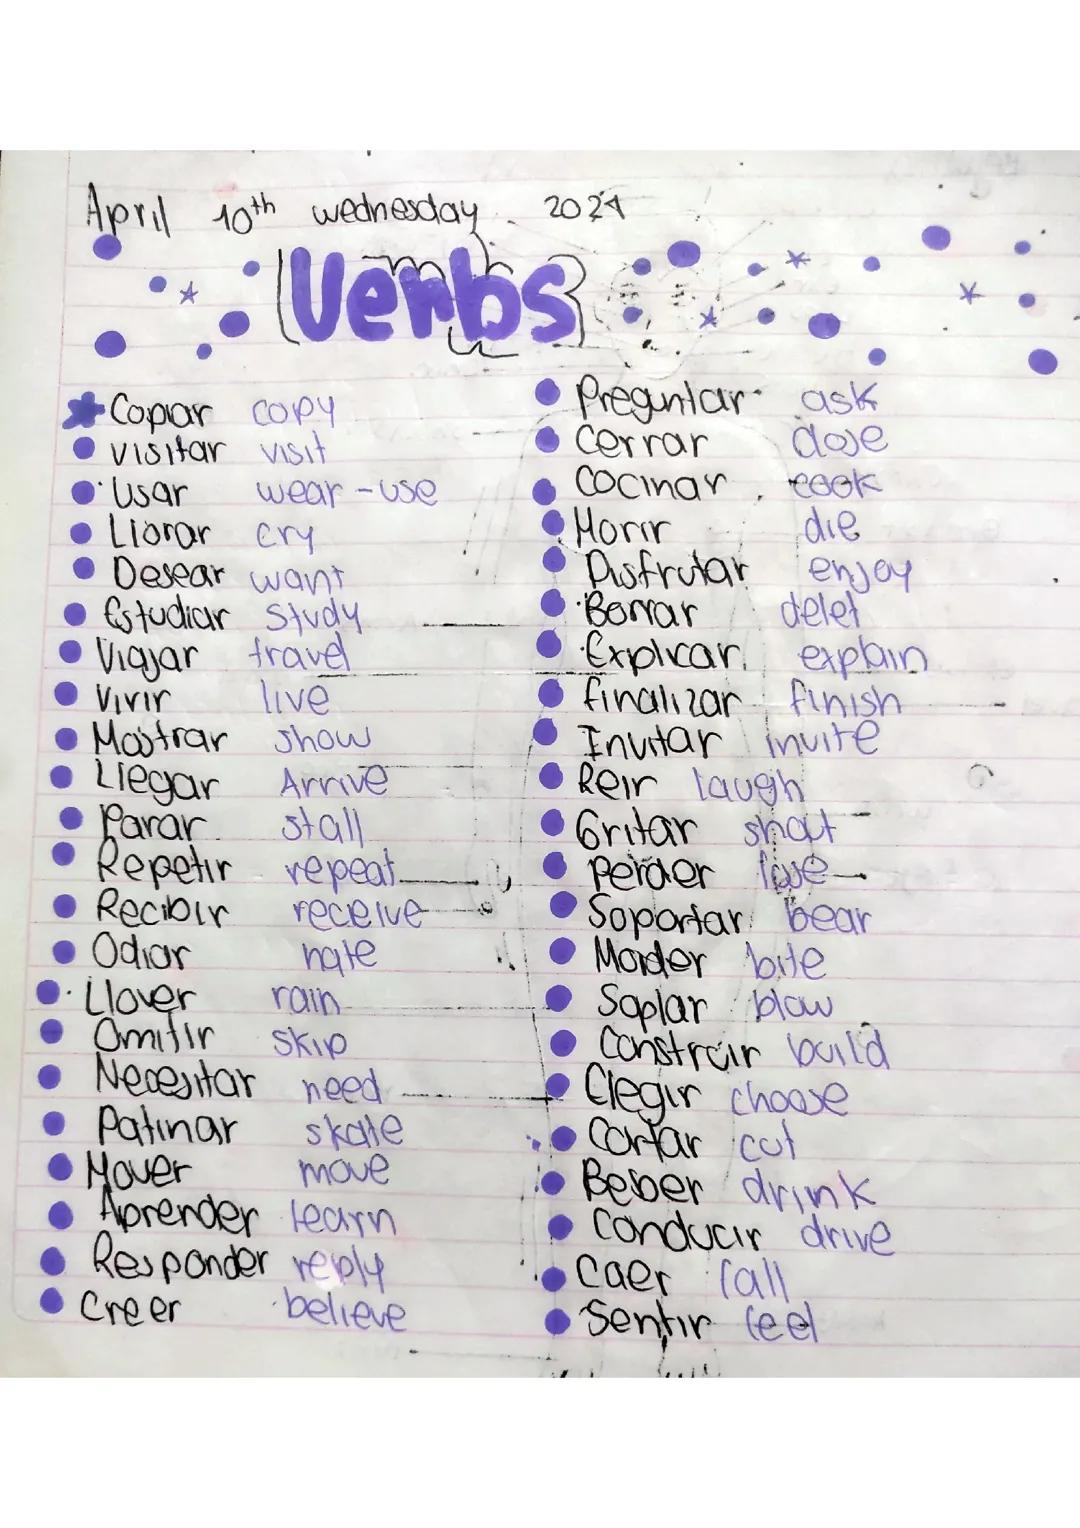 April 10th wednesday 2024
Verbs
Copiar copy
visitar visit
Usar wear-use
Llorar cry
Desear want
Estudiar study
Viajar travel
Vivir live
Mostrar show
Llegar Arrive
Parar stall
Repetir repeat
Recibir receive
Odiar hate
Llover rain
Omitir skip
Necesitar need
Patinar skate
Mover move
Aprender learn
Responder reply
Creer believe
Preguntar ask
Cerrar close
Cocinar cook
Morir die
Disfrutar enjoy
Borrar delet
Explicar explain
finalizar finish
Invitar invite
Reir laugh
Gritar shout
perder lose
Soportar bear
Morder bite
Soplar blow
Construir build
Elegir choose
Cortar cut
Beber drink
Conducir drive
Caer fall
Sentir feel